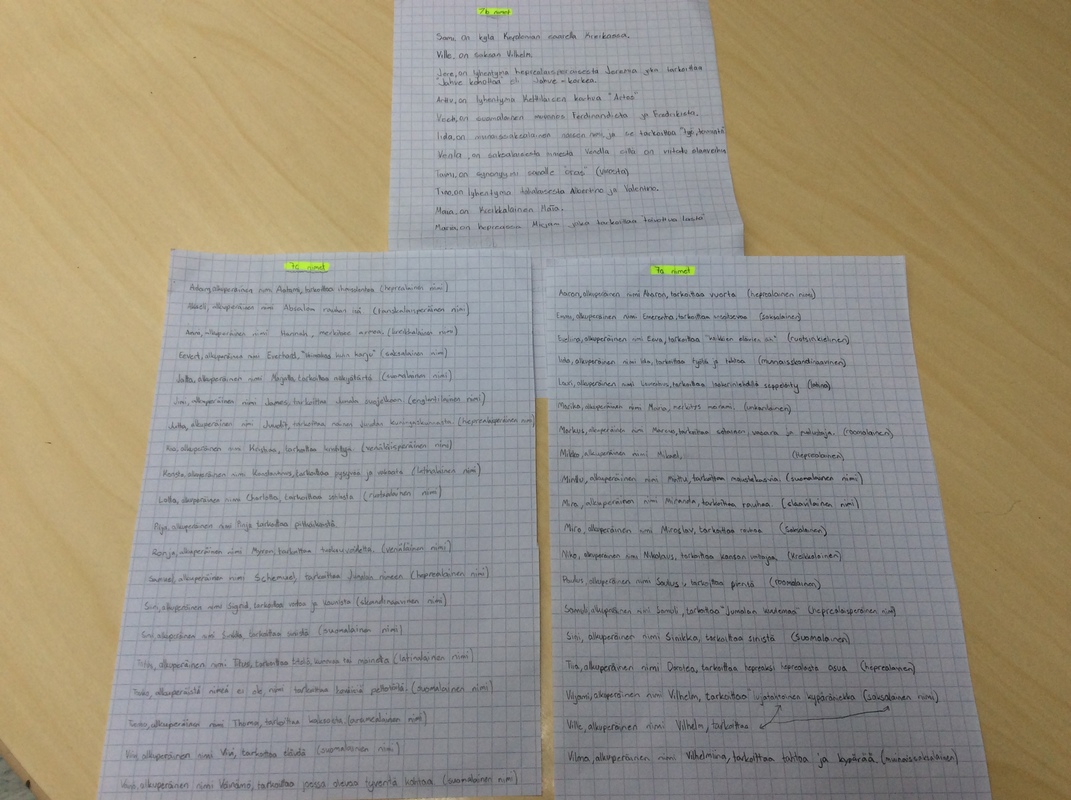 7b nimet
Sami, on kylä Kefalonian saarella Kreikassa.
Ville, on saksan Vilhelm
Jore, on lyhentymä heprealaisperäisestä Jorama, joka tarkoittaa
"Jahve korottaa eli Jahve - korkea.
Arttu, on lyhentymä Kelttiläisen karhua "Artos"
on suomalainen muunnos Ferdinandista ja Fredrikistä.
Iida, on muinaissaksalainen naisen nimi ja se tarkoittaa "työ,
Venla, on saksalaisesta nimestä Vendla sillä on viitattu
Taimi, on synonyymi sanalle "oras" (virosta)
Tino, on lyhentymä italialaisesta Albertino ja Valentino.
Maija, on Kreikkalainen Maia.
Maria, on heprean Mirjam, joka tarkoittaa "toivottua lasta"
7c nimet
alkuperäinen nimi Aatami, tarkoittaa ihmiskuntaa (heprealainen nimi)
alkuperäinen nimi Absalom rauhan isä (tanskalaisperäinen nimi)
Anni, alkuperäinen nimi Hannah, merkitsee armoa, (kreikkalainen nimi)
Eevert, alkuperäinen nimi Everhard, "Voimakas kuin karju" (saksalainen nimi)
alkuperäinen nimi Marjatta, tarkoittaa (suomalainen nimi)
Jimi, alkuperäinen nimi James, tarkoittaa Jumala suojelkoon (englantilainen nimi)
Jutta, alkuperäinen nimi Juudit, tarkoittaa nainen Juudan kuningaskunnasta (heprealaisperäinen nimi)
alkuperäinen nimi Kristiina, tarkoittaa kristitty (nimi)
Konsta, alkuperäinen nimi Konstantinus, tarkoittaa pysyvää ja vakaata (latinalainen nimi)
Lotta, alkuperäinen nimi Charlotta, tarkoittaa (ruotsalainen nimi)
Pinja, alkuperäinen nimi Pinja tarkoittaa
Ronja, alkuperäinen nimi Myron, tarkoittaa tuoksuvoidetta (venäläinen nimi)
Samuel, alkuperäinen nimi Schemuel, tarkoittaa Jumalan nimeen (heprealainen nimi)
Siiri, alkuperäinen nimi Sigrid, tarkoittaa voitoa ja kaunista (skandinaavinen nimi)
Sini, alkuperäinen nimi Sinikka, tarkoittaa sinistä (suomalainen nimi)
alkuperäinen nimi Titus, tarkoittaa titteliä, kunniaa tai mainetta (latinalainen nimi)
alkuperäistä nimeä ei ole, nimi tarkoittaa heiniä pellonlaitaa (suomalainen nimi)
Tuomo, alkuperäinen nimi Thoma, tarkoittaa kaksosta (aramealainen nimi)
Vivi, alkuperäinen nimi Vivi, tarkoittaa (suomalainen nimi)
Väinö, alkuperäinen nimi Väinämö, tarkoittaa joessa olevaa tyventä kohtaa (suomalainen nimi)
7a nimet
Aaron, alkuperäinen nimi Aharon, tarkoittaa vuorta (heprealainen nimi)
Emmi, alkuperäinen nimi Emerentia, tarkoittaa ansaitsevaa (saksalainen)
Eveliina, alkuperäinen nimi Eeva, tarkoittaa "kaikkien elävien äiti" (ruotsinkielinen)
Iida, alkuperäinen nimi Ida, tarkoittaa työtä ja tahtoa (muinaisskandinaavinen)
Lauri, alkuperäinen nimi Laurentius, tarkoittaa laakerinlehdillä seppelöity (latina)
alkuperäinen nimi Maria, merkitys (unkarilainen)
Markus, alkuperäinen nimi Marcus, tarkoittaa sotainen, vasara ja puolustaja. (roomalainen)
Mikko, alkuperäinen nimi Mikael, (heprealainen)
Minttu, alkuperäinen nimi Minttu, tarkoittaa maustekasvia (suomalainen nimi)
Mira, alkuperäinen nimi Miranda, tarkoittaa rauhaa (slaavilainen nimi)
Miro, alkuperäinen nimi Miroslav, tarkoittaa rauhaa (saksalainen)
Niko, alkuperäinen nimi Nikolaus, tarkoittaa kansan voittajaa (kreikkalainen)
Paulus, alkuperäinen nimi Saulus, tarkoittaa pientä (roomalainen)
Samuli, alkuperäinen nimi Samuli, tarkoittaa "Jumalan kuulemaa" (heprealaisperäinen nimi)
Sini, alkuperäinen nimi Sinikka, tarkoittaa sinistä (suomalainen)
Tiia, alkuperäinen nimi Dorotea, tarkoittaa hepreaksi heprealaista asua (heprealainen)
Viljami, alkuperäinen nimi Vilhelm, tarkoittaa "lujatahtoinen kypäräniekka (saksalainen nimi)
Ville, alkuperäinen nimi Vilhelm, tarkoittaa
Vilma, alkuperäinen nimi Vilhelmina, tarkoittaa tahtoa ja kypärää. (muinaissaksalainen)